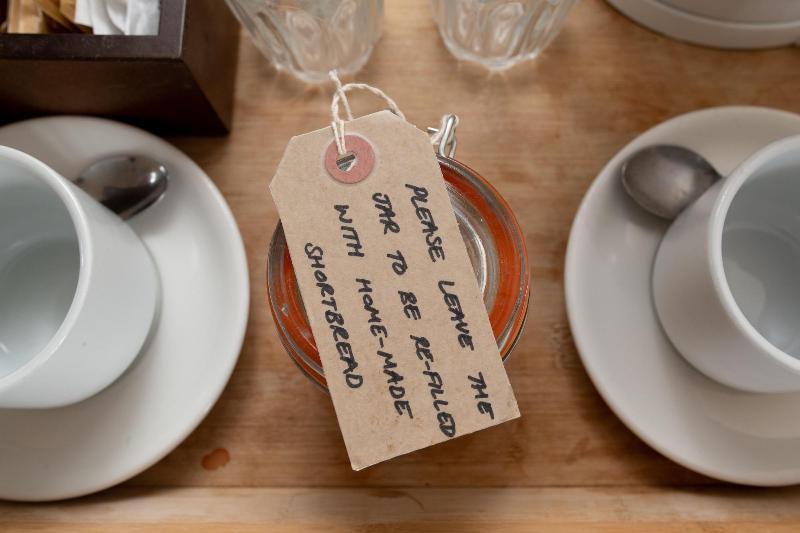 PLEASE LEAVE THE
JAR TO BE RE-FILLED
WITH HOME-MADE
SHORTBREAD